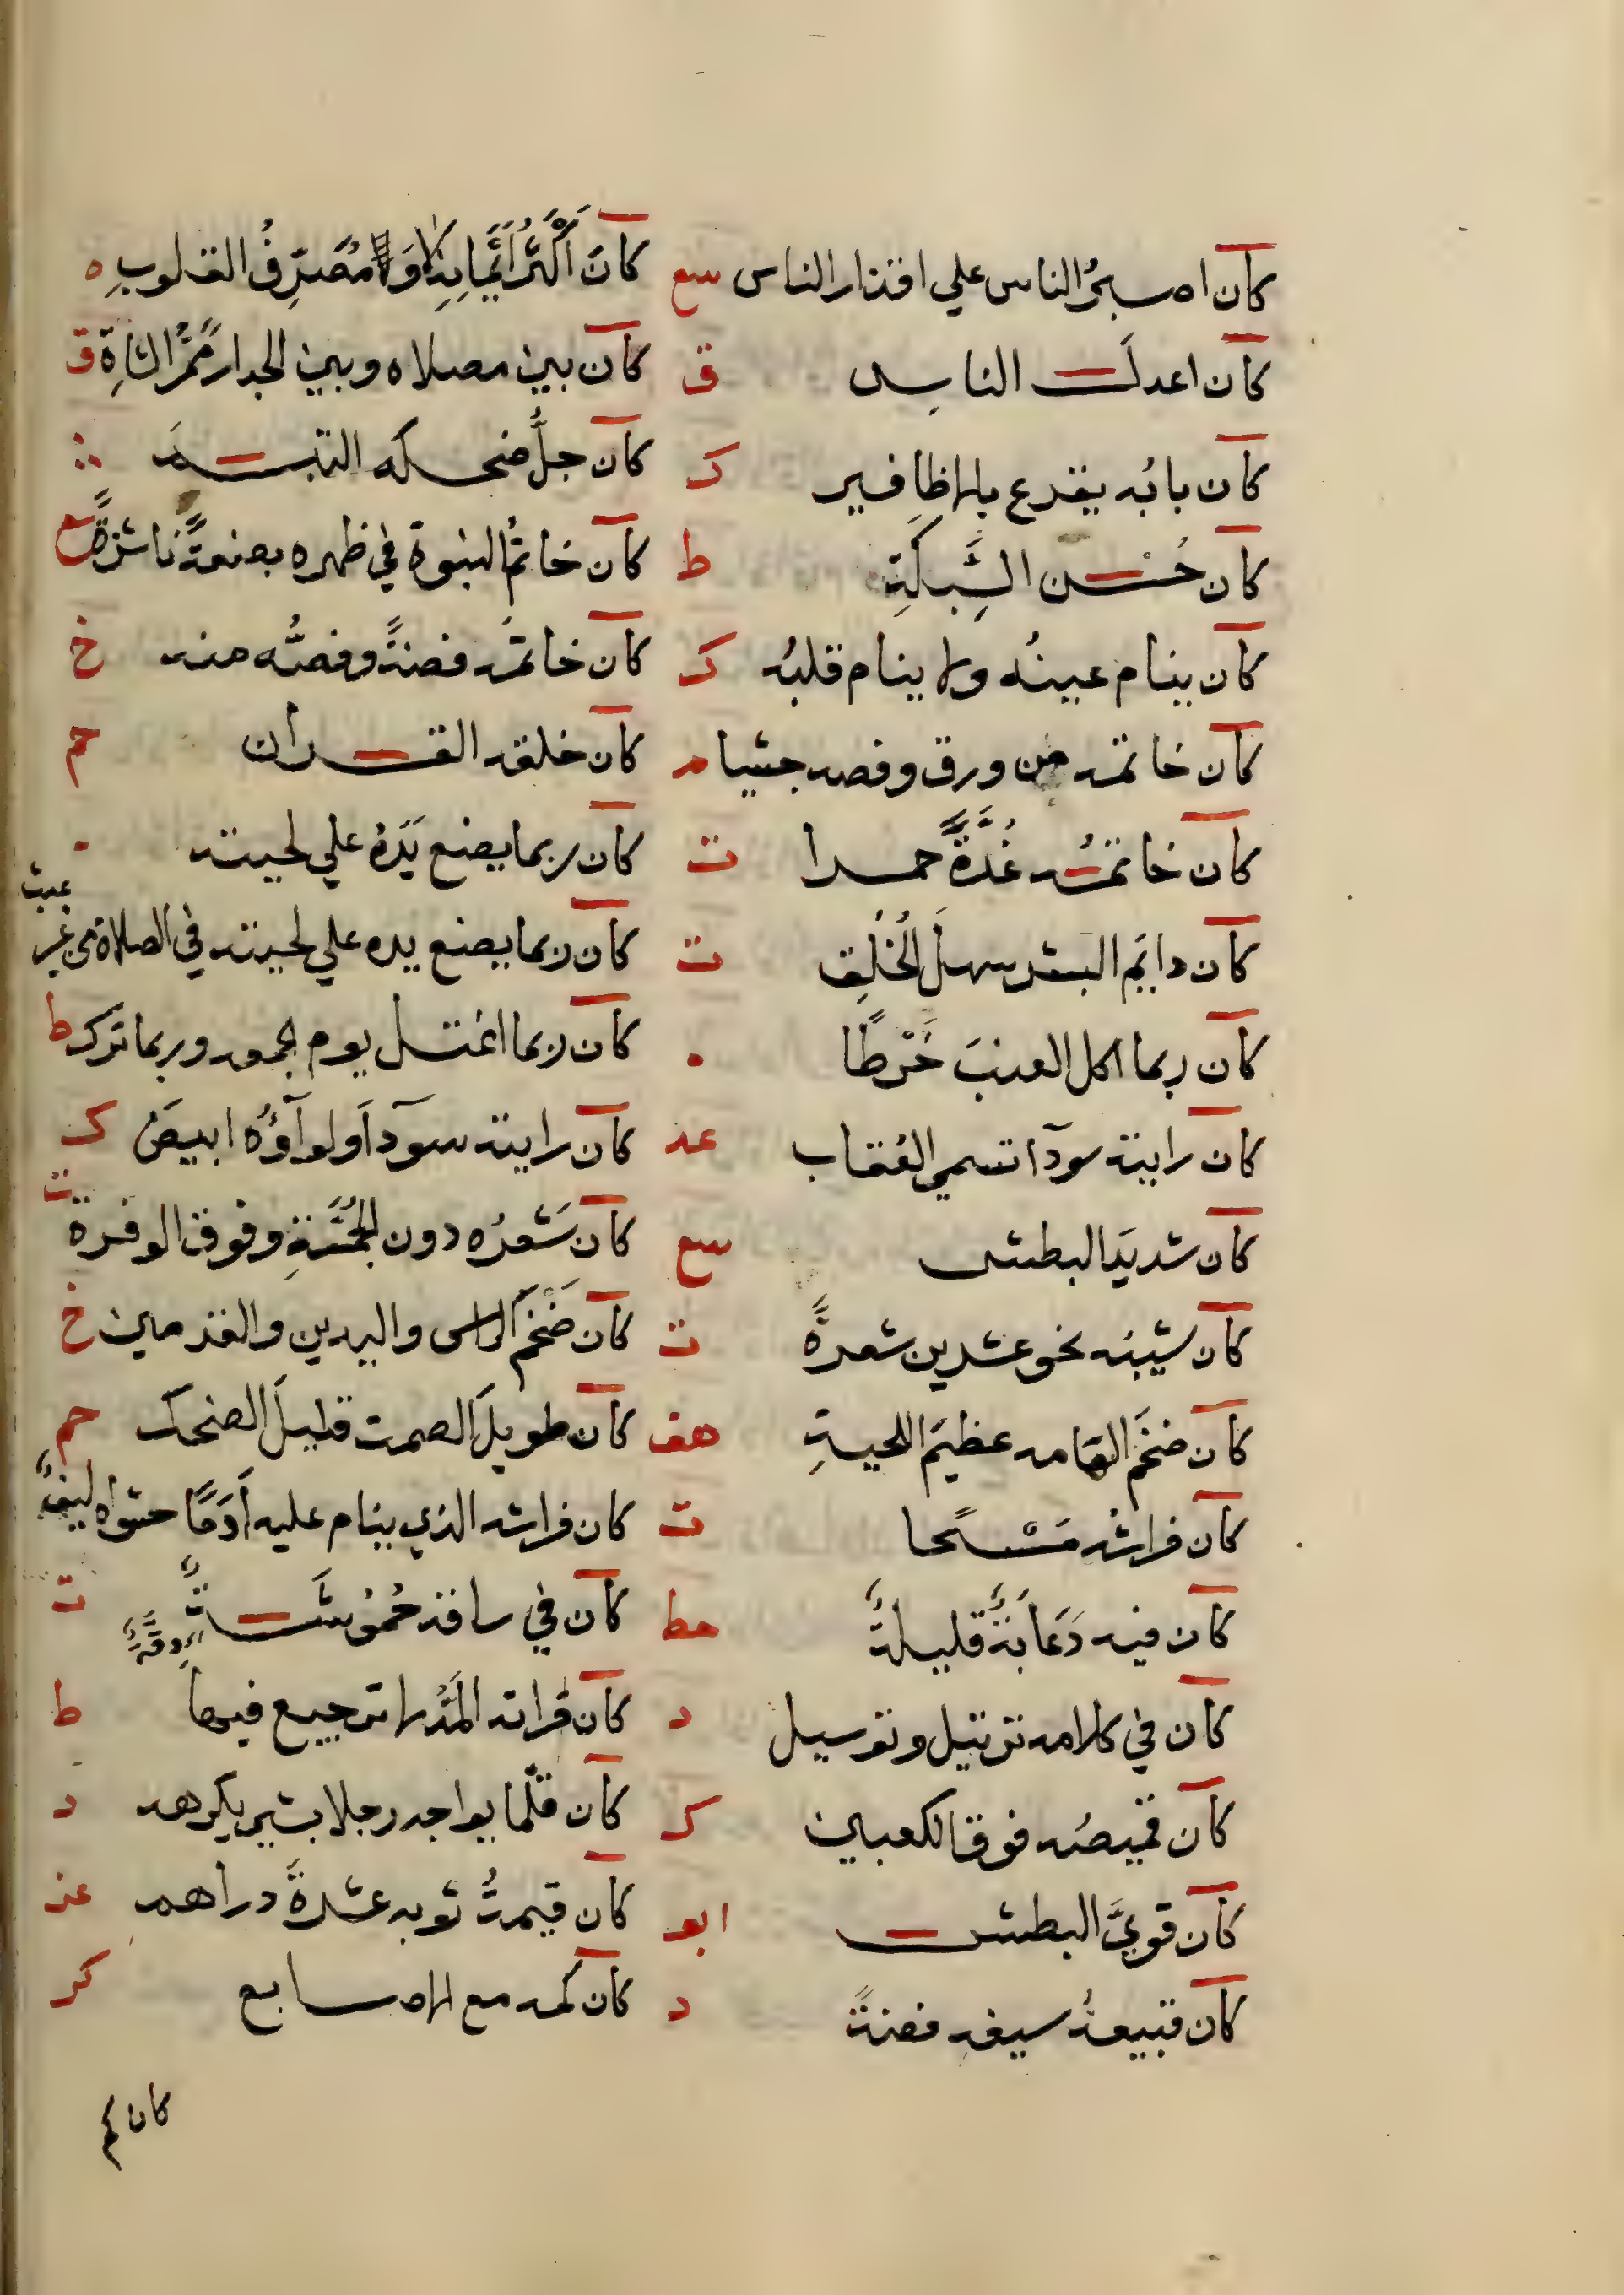 كان اصبر الناس علي اقذار الناس سع
كان اعدل الناس ق
كان بابه يقرع بالاظافير ك
كان حُسْن السَّبَكَةِ ط
كان ينام عينُه ولا ينام قلبُه ك
كان خاتمه من ورق وفصه حبشيا م
كان خاتمُه غُدَّةً حمرا ت
كان دايم البشر سهلَ الخُلُق ت
كان ربما اكل العنبَ خَرْطًا
كان رايته سودا تسمي العُقاب عد
كان شديدَ البطش سع
كان شيبُه نحو عشرين شعرةً ت
كان ضخمَ الهامه عظيمَ اللحيةِ هق
كان فراشه مَسْحا ت
كان فيه دَعَابَةٌ قليلةٌ خط
كان في كلامه ترتيل وترسيل د
كان قميصُه فوق الكعبين ك
كان قويَّ البطش ابو
كان قبيعةُ سيفِه فضةً د
كَانَ أكْثَرُ أَيْمَانِهِ لا وَمُصَرِّفُ القلوبِ ه
كان بين مصلاه وبين الجدار مَمَرُّ الشاةِ ق
كان جلُّ ضحكه التبسمَ
كان خاتمُ النبوة في ظهره بضعةً ناشزةً سع
كان خاتمُه فضةً وفصُّه منه خ
كان خلقه القران حم
كان ربما يضع يَدَهُ علي لحيته
كان ربما يضع يده علي لحيته في الصلاة من غير عبث
كان ربما اغتسل يوم الجمعه وربما ترك ط
كان رايته سودآ ولوآؤُه ابيضَ ك
كان شَعرُه دون الجُمَّةِ وفوق الوفرة ت
كان ضَخْمَ الراس واليدين والقدمين خ
كان طويلَ الصمت قليلَ الضحك حم
كان فراشه الذي ينام عليه أدَمًا حشواه ليفٌ
كان في ساقه حُمُوشَةٌ اي دِقَّةٌ ت
كان قراته المَدّ لا ترجيع فيها ط
كان قلّما يواجه رجلا بشي يكرهه د
كان قيمةُ ثوبه عشرةَ دراهم عد
كان كمه مع الاصابع كر
كان كم